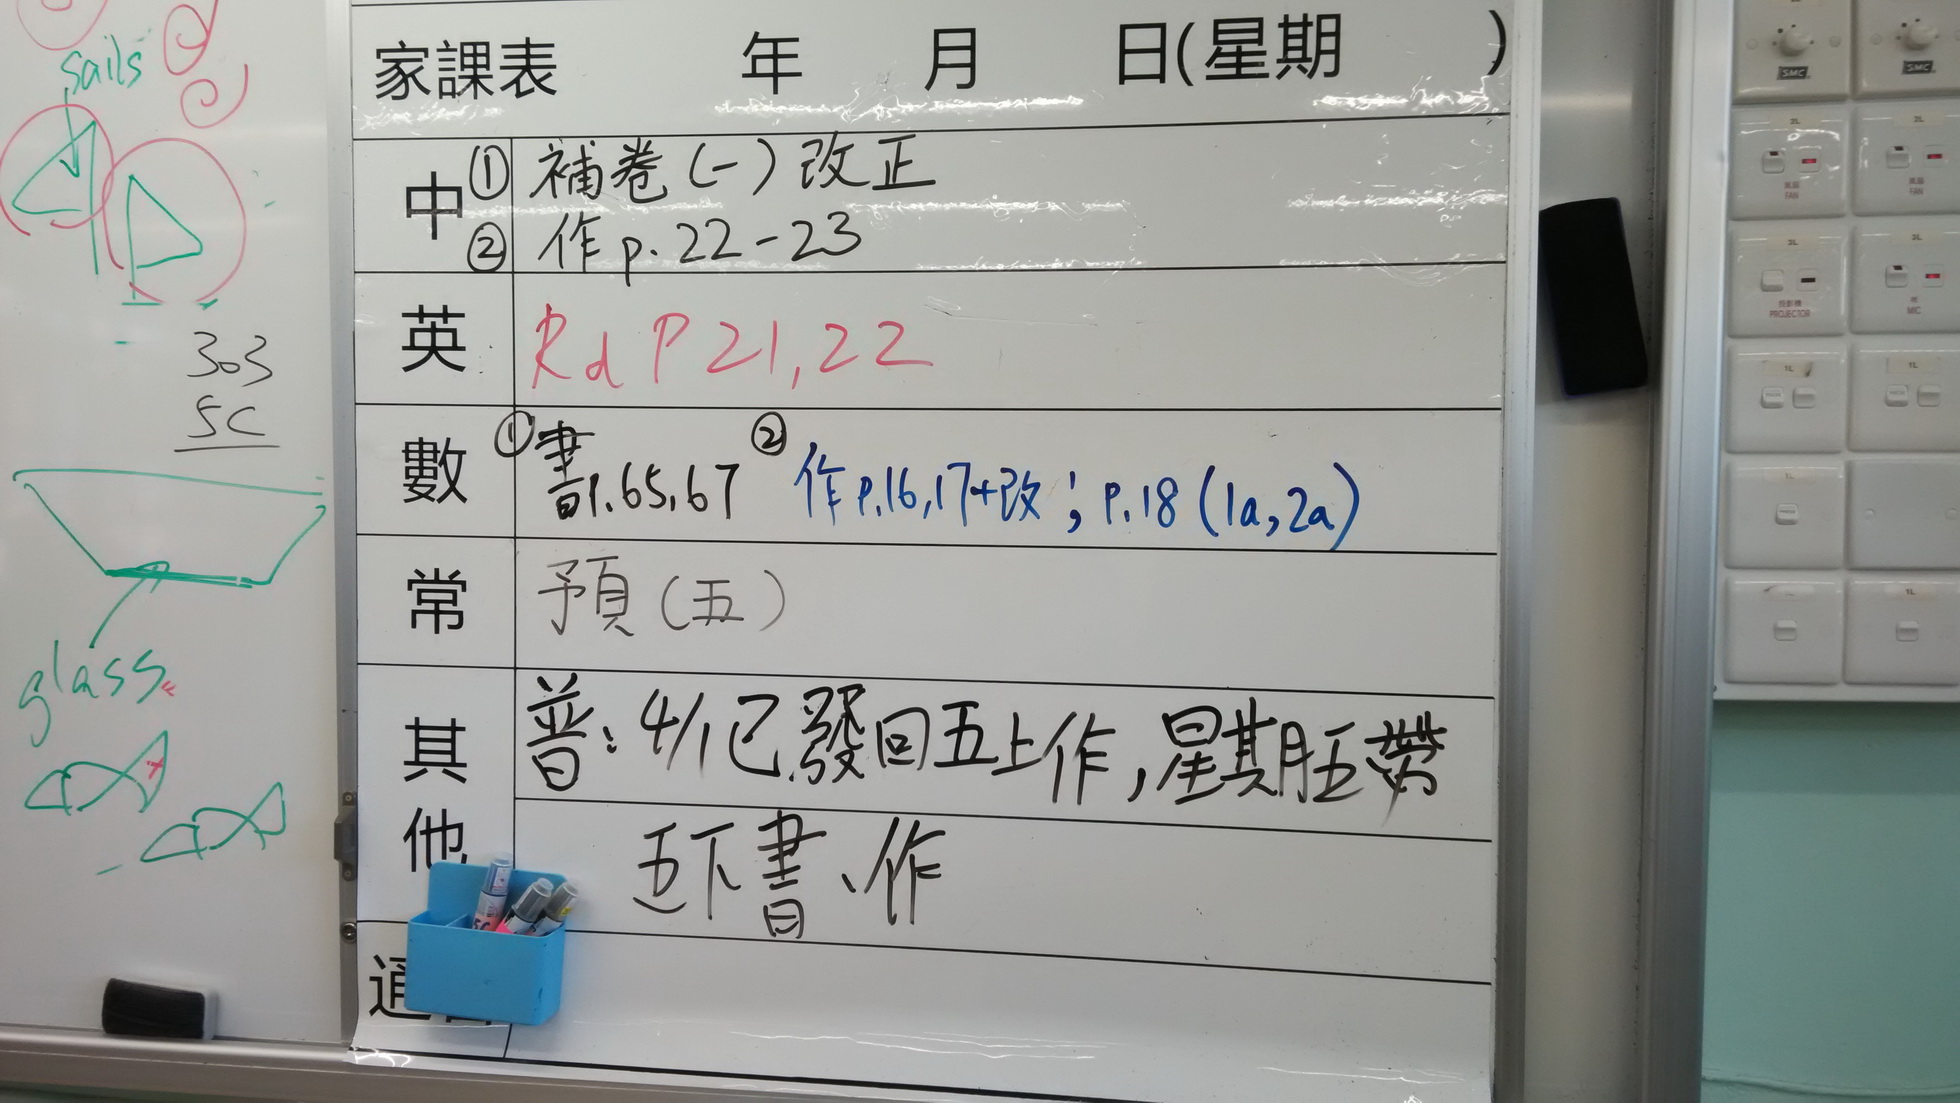 sails
303
5C
glass
家課表 年 月 日(星期 )
中 ① 補卷(一)改正
② 作p.22-23
英 Rd P21,22
數 ①書P.65,67 ②作P.16,17+改;P.18(1a,2a)
常 預(五)
其他 普:4/1已發回五上作,星期五帶
五下書、作
通
SMC
SMC
2L
2L
風扇
FAN
風扇
FAN
投影機
PROJECTOR
MIC
1L
1L
1L